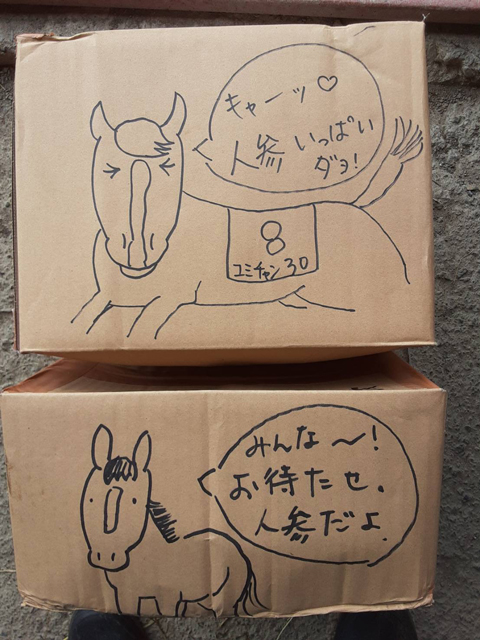 キャーッ♡
人参いっぱい
ダョ!
8
ユミチャン30
みんな〜!
お待たせ。
人参だよ